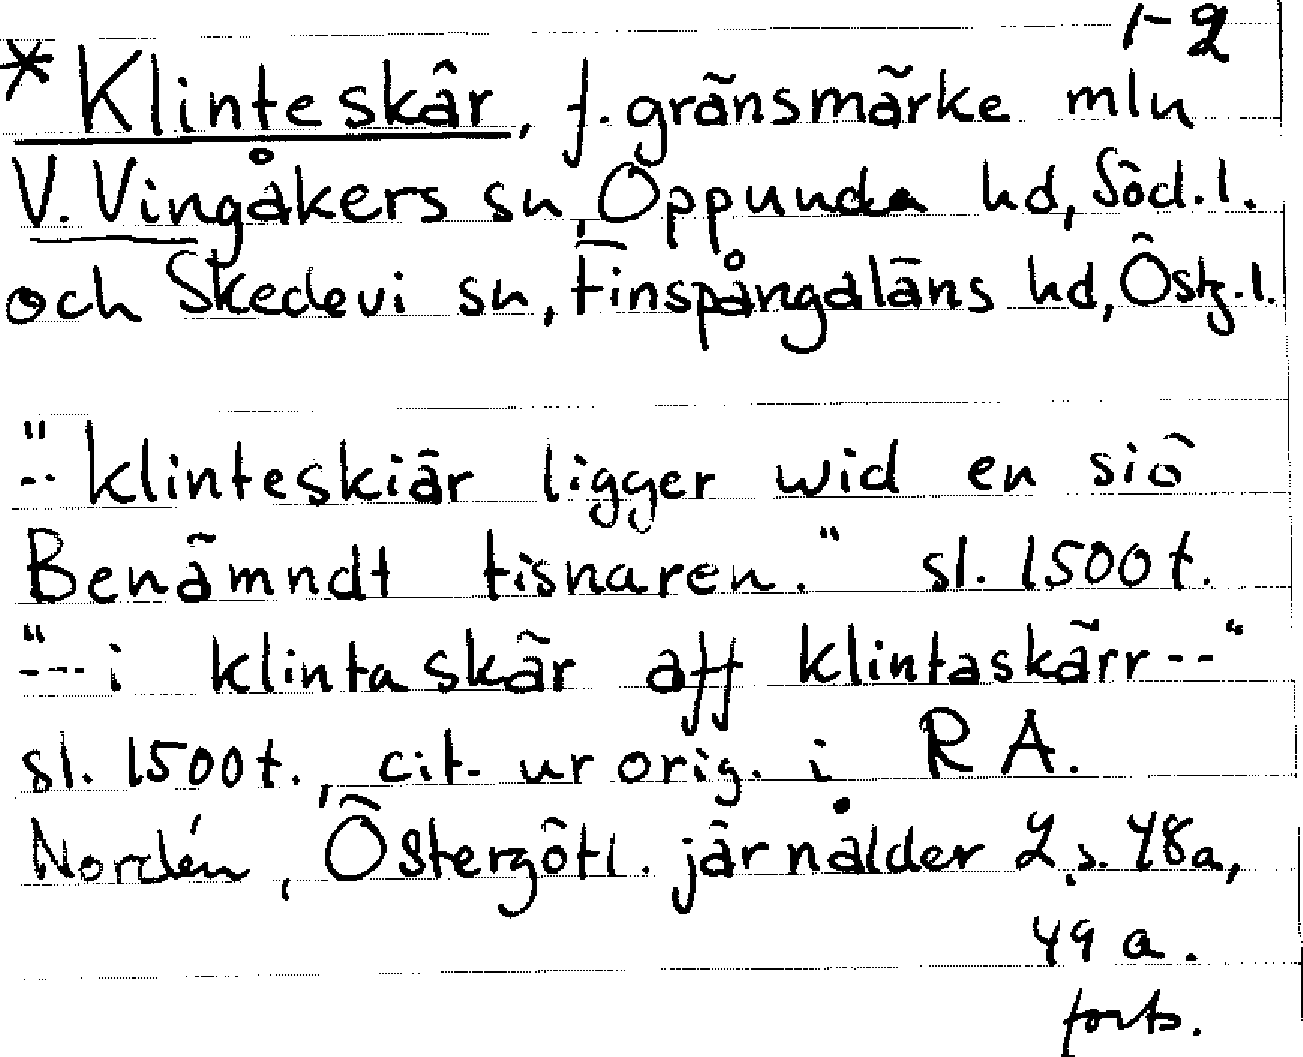 1-2
*Klinteskär, f. gränsmärke mln
V. Vingåkers sn, Oppunda hd, Söd. l.
och Skedevi sn, Finspångaläns hd, Östg. l.
"-- klinteskiär ligger wid en siö
Benämndt tisnaren." sl. 1500 t.
"--- i klinta skär aff klintaskärr --"
sl. 1500 t., cit. ur orig. i RA.
Nordén, Östergötl. järnålder 2 s. 48a,
49 a.
forts.